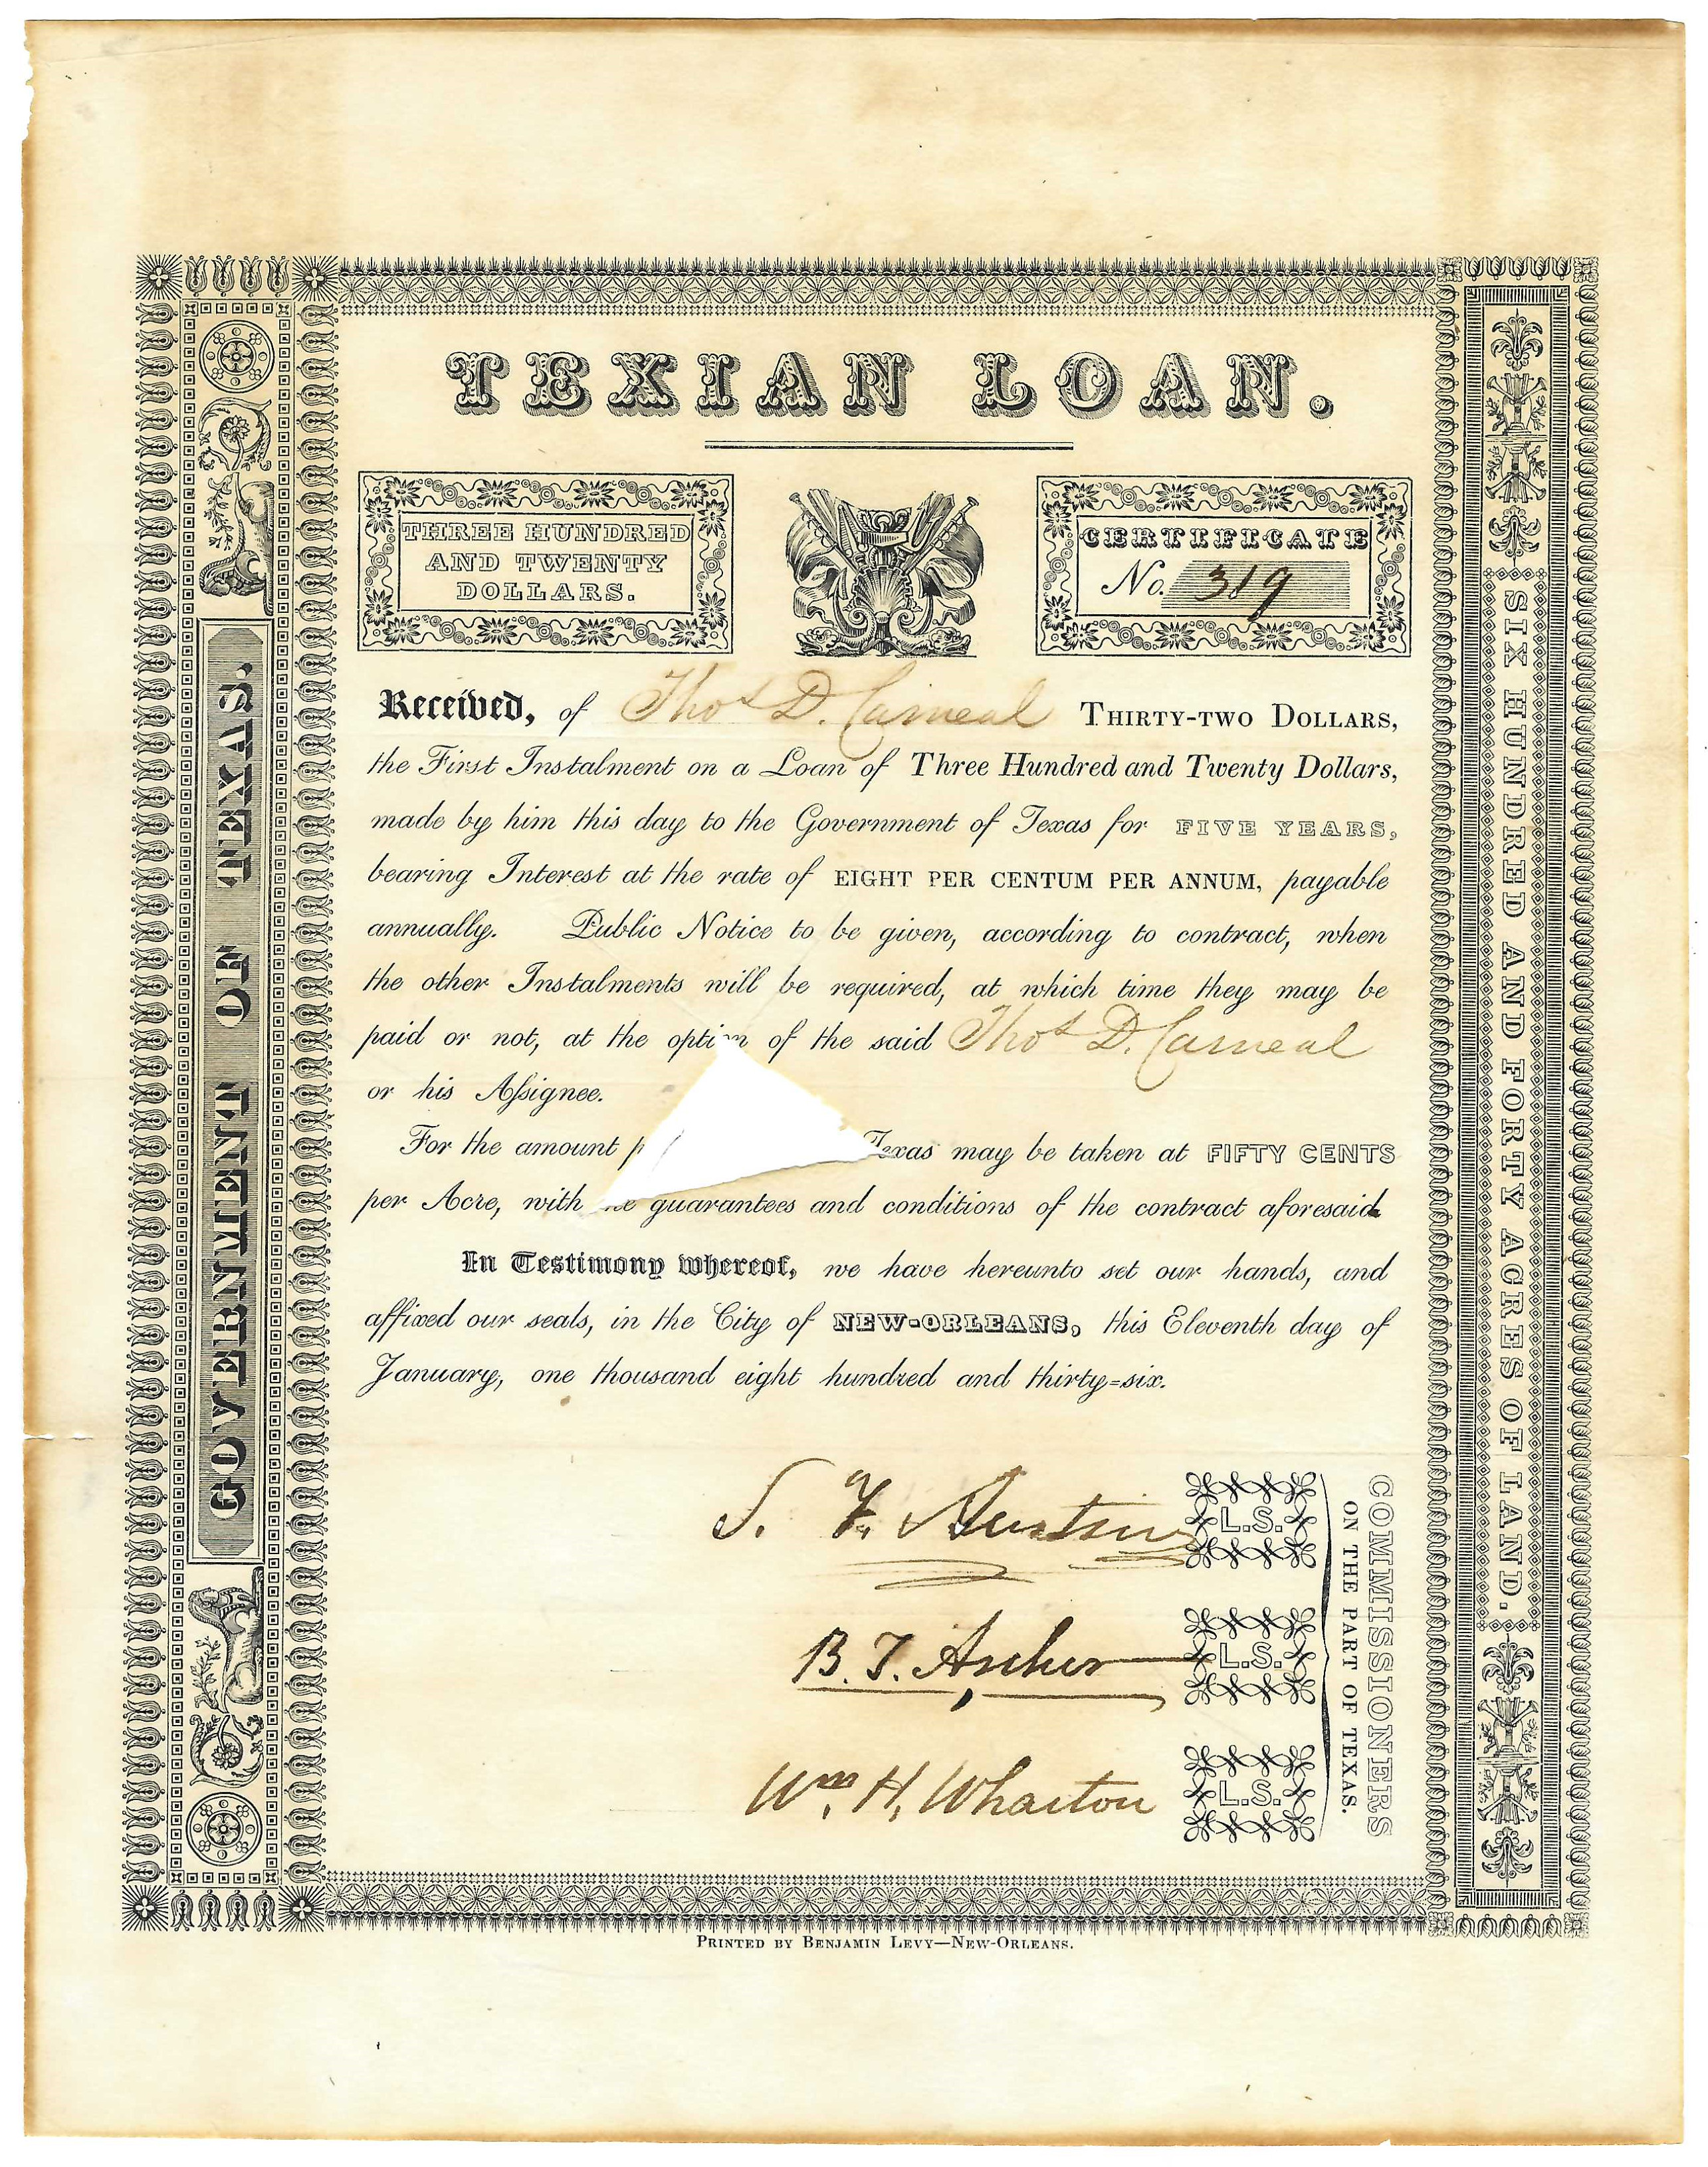 TEXIAN LOAN.
THREE HUNDRED
AND TWENTY
DOLLARS.
CERTIFICATE
No. 319
GOVERNMENT OF TEXAS.
SIX HUNDRED AND FORTY ACRES OF LAND.
Received, of Thos D. Carneal THIRTY-TWO DOLLARS,
the First Instalment on a Loan of Three Hundred and Twenty Dollars,
made by him this day to the Government of Texas for FIVE YEARS,
bearing Interest at the rate of EIGHT PER CENTUM PER ANNUM, payable
annually. Public Notice to be given, according to contract, when
the other Instalments will be required, at which time they may be
paid or not, at the option of the said Thos D. Carneal
or his Assignee.
For the amount Texas may be taken at FIFTY CENTS
per Acre, with guarantees and conditions of the contract aforesaid.
In Testimony whereof, we have hereunto set our hands, and
affixed our seals, in the City of NEW-ORLEANS, this Eleventh day of
January, one thousand eight hundred and thirty=six.
S. F. Austin L.S.
B. T. Archer L.S.
Wm. H. Wharton L.S.
COMMISSIONERS
ON THE PART OF TEXAS.
PRINTED BY BENJAMIN LEVY—NEW-ORLEANS.